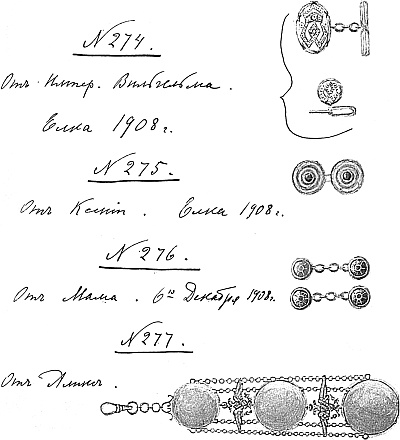 N 274.
Отъ Импер. Вильгельма.
Елка 1908 г.
N 275.
Отъ Ксеніи. Елка 1908 г.
N 276.
Отъ Мама. 6го Декабря 1908 г.
N 277.
Отъ